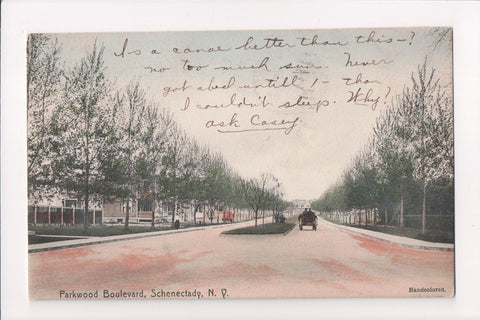 Is a canoe better than this-?
no too much sun. Never
got abed untill 1- than
I couldn't sleep. Why?
ask Casey.
Parkwood Boulevard, Schenectady, N. Y.
Handcolored.